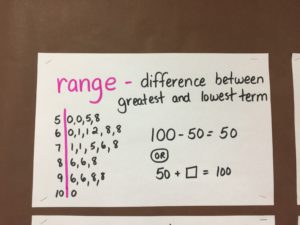 range - difference between
greatest and lowest term
5 | 0,0,5,8
6 | 0,1,1,2,8,8
7 | 1,1,5,6,8
8 | 6,6,8
9 | 6,6,8,8
10 | 0
100 - 50 = 50
OR
50 + □ = 100